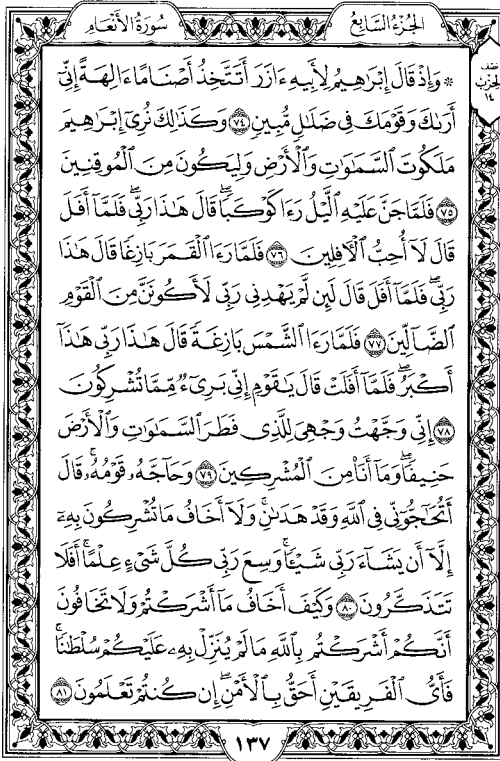 الجزء السابع
سورة الأنعام
نصف
الحزب
١٤
* وَإِذْ قَالَ إِبْرَٰهِيمُ لِأَبِيهِ ءَازَرَ أَتَتَّخِذُ أَصْنَامًا ءَالِهَةً إِنِّىٓ
أَرَىٰكَ وَقَوْمَكَ فِى ضَلَٰلٍ مُّبِينٍ ٧٤ وَكَذَٰلِكَ نُرِىٓ إِبْرَٰهِيمَ
مَلَكُوتَ ٱلسَّمَٰوَٰتِ وَٱلْأَرْضِ وَلِيَكُونَ مِنَ ٱلْمُوقِنِينَ
٧٥ فَلَمَّا جَنَّ عَلَيْهِ ٱلَّيْلُ رَءَا كَوْكَبًا ۖ قَالَ هَٰذَا رَبِّى ۖ فَلَمَّآ أَفَلَ
قَالَ لَآ أُحِبُّ ٱلْءَافِلِينَ ٧٦ فَلَمَّا رَءَا ٱلْقَمَرَ بَازِغًا قَالَ هَٰذَا
رَبِّى ۖ فَلَمَّآ أَفَلَ قَالَ لَئِن لَّمْ يَهْدِنِى رَبِّى لَأَكُونَنَّ مِنَ ٱلْقَوْمِ
ٱلضَّآلِّينَ ٧٧ فَلَمَّا رَءَا ٱلشَّمْسَ بَازِغَةً قَالَ هَٰذَا رَبِّى هَٰذَآ
أَكْبَرُ ۖ فَلَمَّآ أَفَلَتْ قَالَ يَٰقَوْمِ إِنِّى بَرِىٓءٌ مِّمَّا تُشْرِكُونَ
٧٨ إِنِّى وَجَّهْتُ وَجْهِىَ لِلَّذِى فَطَرَ ٱلسَّمَٰوَٰتِ وَٱلْأَرْضَ
حَنِيفًا ۖ وَمَآ أَنَا۠ مِنَ ٱلْمُشْرِكِينَ ٧٩ وَحَآجَّهُۥ قَوْمُهُۥ ۚ قَالَ
أَتُحَٰٓجُّوٓنِّى فِى ٱللَّهِ وَقَدْ هَدَىٰنِ ۚ وَلَآ أَخَافُ مَا تُشْرِكُونَ بِهِۦٓ
إِلَّآ أَن يَشَآءَ رَبِّى شَيْـًٔا ۗ وَسِعَ رَبِّى كُلَّ شَىْءٍ عِلْمًا ۗ أَفَلَا
تَتَذَكَّرُونَ ٨٠ وَكَيْفَ أَخَافُ مَآ أَشْرَكْتُمْ وَلَا تَخَافُونَ
أَنَّكُمْ أَشْرَكْتُم بِٱللَّهِ مَا لَمْ يُنَزِّلْ بِهِۦ عَلَيْكُمْ سُلْطَٰنًا ۚ
فَأَىُّ ٱلْفَرِيقَيْنِ أَحَقُّ بِٱلْأَمْنِ ۖ إِن كُنتُمْ تَعْلَمُونَ ٨١
١٣٧